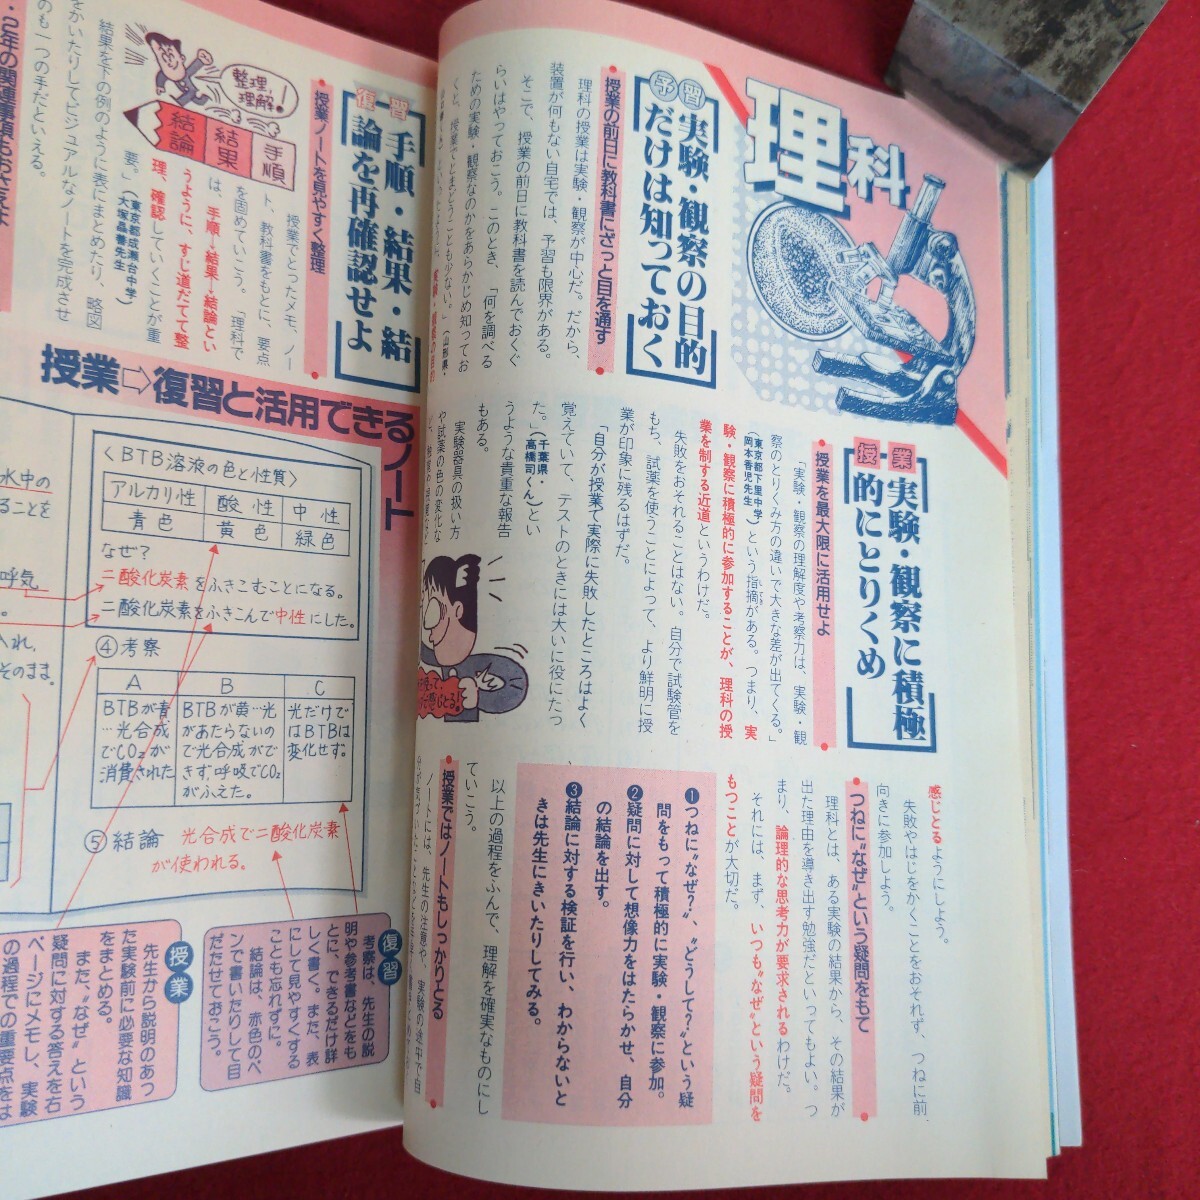 理科
予習
実験・観察の目的
だけは知っておく
授業の前日に教科書にざっと目を通す
理科の授業は実験・観察が中心だ。だから、
装置が何もない自宅では、予習も限界がある。
そこで、授業の前日に教科書を読んでおくぐ
らいはやっておこう。このとき、「何を調べる
ための実験・観察なのかをあらかじめ知ってお
くと、授業でとまどうことも少ない。」(山形県・
授業
実験・観察に積極
的にとりくめ
授業を最大限に活用せよ
「実験・観察の理解度や考察力は、実験・観
察のとりくみ方の違いで大きな差が出てくる。」
(東京都下里中学
岡本香児先生)という指摘がある。つまり、実
験・観察に積極的に参加することが、理科の授
業を制する近道というわけだ。
失敗をおそれることはない。自分で試験管を
もち、試薬を使うことによって、より鮮明に授
業が印象に残るはずだ。
「自分が授業で実際に失敗したところはよく
覚えていて、テストのときには大いに役にたっ
た。」(千葉県・
高橋司くん)とい
うような貴重な報告
もある。
実験器具の扱い方
や試薬の色の変化な
感じとるようにしよう。
失敗やはじをかくことをおそれず、つねに前
向きに参加しよう。
つねに“なぜ”という疑問をもて
理科とは、ある実験の結果から、その結果が
出た理由を導き出す勉強だといってもよい。つ
まり、論理的な思考力が要求されるわけだ。
それには、まず、いつも“なぜ”という疑問を
もつことが大切だ。
❶つねに“なぜ?”、“どうして?”という疑
問をもって積極的に実験・観察に参加。
❷疑問に対して想像力をはたらかせ、自分
の結論を出す。
❸結論に対する検証を行い、わからないと
きは先生にきいたりしてみる。
以上の過程をふんで、理解を確実なものにし
ていこう。
授業ではノートもしっかりとる
ノートには、先生の注意や、実験の途中で自
復習
手順・結果・結
論を再確認せよ
授業ノートを見やすく整理
整理、
理解!
手順
結果
結論
授業でとったメモ、ノー
ト、教科書をもとに、要点
を固めていこう。「理科で
は、手順→結果→結論とい
うように、すじ道だてて整
理、確認していくことが重
要。」(東京都成瀬台中学
大塚晶善先生)
結果を下の例のように表にまとめたり、略図
をかいたりしてビジュアルなノートを完成させ
のも一つの手だといえる。
・2年の関連事項もおさえよ
授業⇨復習と活用できるノート
〈BTB溶液の色と性質〉
アルカリ性 酸性 中性
青色 黄色 緑色
なぜ?
二酸化炭素をふきこむことになる。
二酸化炭素をふきこんで中性にした。
④考察
A B C
BTBが青…光合成でCO₂が消費された
BTBが黄…光があたらないので光合成ができず、呼吸でCO₂がふえた。
光だけではBTBは変化せず。
⑤結論 光合成で二酸化炭素
が使われる。
水中の
ることを
呼気
入れ,
そのまま.
復習
考察は、先生の説
明や参考書などをも
とに、できるだけ詳
しく書く。また、表
にして見やすくする
ことも忘れずに。
結論は、赤色のペ
ンで書いたりして目
だたせておこう。
授業
先生から説明のあっ
た実験前に必要な知識
をまとめる。
また、“なぜ”という
疑問に対する答えを右
ページにメモし、実験
の過程での重要点をは